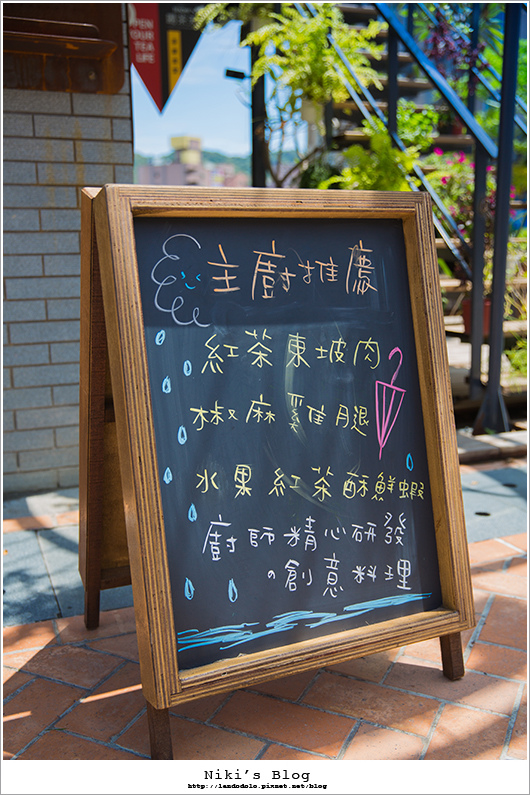 OPEN
YOUR
TEA
LIFE
主廚推薦
紅茶東坡肉
椒麻雞腿
水果紅茶酥鮮蝦
廚師精心研發
的創意料理
Niki's Blog
http://landodolo.pixnet.net/blog